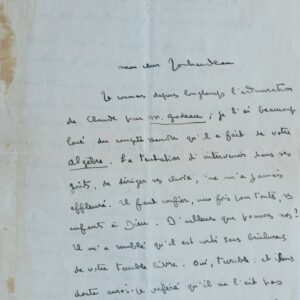 mon cher Jouhandeau
Je connais depuis longtemps l'admiration
de Claude pour M. Godeau ; je l'ai beaucoup
loué du compte rendu qu'il a fait de votre
Algèbre. La tentation d'intervenir dans ses
goûts, de diriger ses choix, ne m'a jamais
effleuré. Il faut confier, une fois pour toutes, ses
enfants à Dieu. D'ailleurs que pouvons-nous ?
Il m'a semblé qu'il est sorti sans brûlures
de votre terrible livre. Oui, terrible : et sans
doute aurais-je préféré qu'il ne l'ait pas